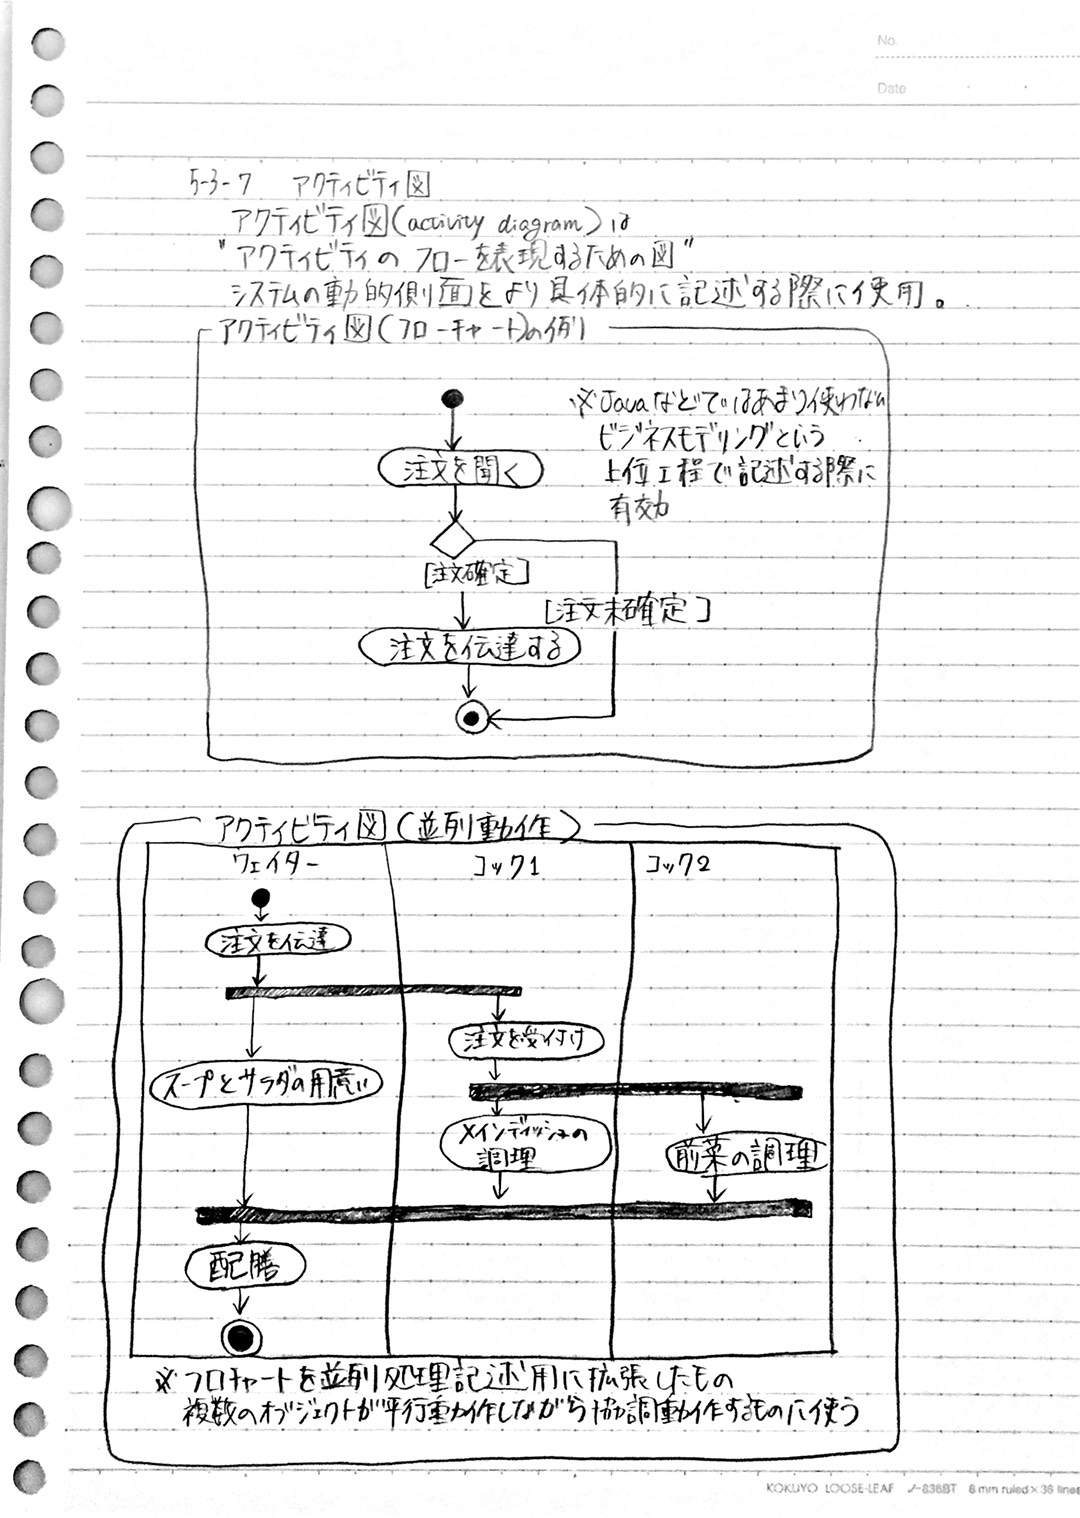 No.
Date
5-3-7 アクティビティ図
アクティビティ図(activity diagram)は
"アクティビティの フローを表現するための図"
システムの動的側面をより具体的に記述する際に使用。
アクティビティ図(フローチャート)の例
※Javaなどではあまり使わない
ビジネスモデリングという
上位工程で記述する際に
有効
注文を聞く
[注文確定]
[注文未確定]
注文を伝達する
アクティビティ図(並列動作)
ウェイター コック1 コック2
注文を伝達
注文を受付け
スープとサラダの用意い
メインディッシュの
調理
前菜の調理
配膳
※フロチャートを並列処理記述用に拡張したもの
複数のオブジェクトが平行動作しながら協調動作するものに使う
KOKUYO LOOSE-LEAF ノ-836BT 6 mm ruled×36 lines